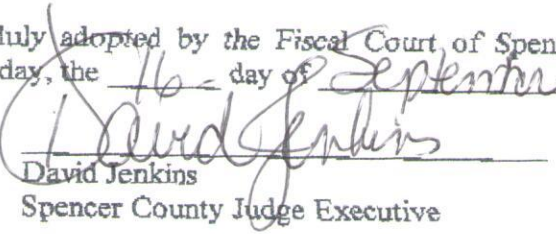 duly adopted by the Fiscal Court of Spen
day, the 16 day of Septembe
David Jenkins
David Jenkins
Spencer County Judge Executive